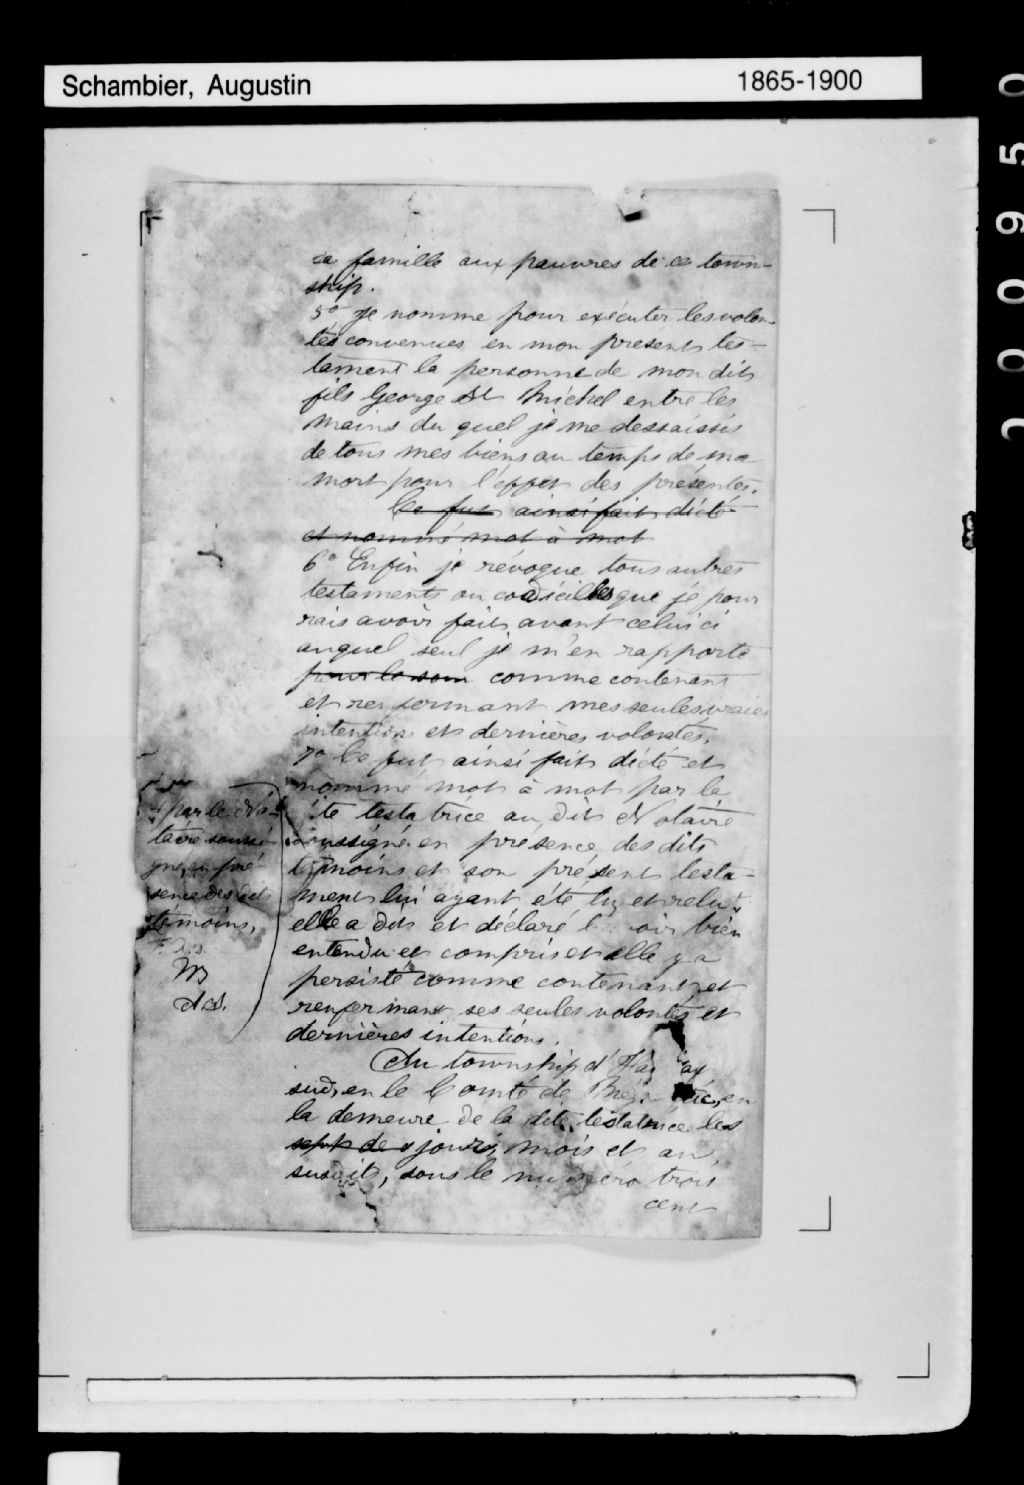 Schambier, Augustin
1865-1900
sa famille aux pauvres de ce town-
ship.
5º Je nomme pour exécuter les volon-
tés convenues en mon present tes-
tament la personne de mon dit
fils George St Michel entre les
mains du quel je me dessaisis
de tous mes biens au temps de ma
mort pour l'effet des présentes.
Ce fut ainsi fait dicté
et nommé mot à mot
6º Enfin je révoque tous autres
testaments ou codicilles que je pour
rais avoir faits avant celui ci
auquel seul je m'en rapporte
comme contenant
et renfermant mes seules vraies
intentions et dernières volontés.
7º Ce fut ainsi fait dicté et
nommé mot à mot par la
dite testatrice au dit Notaire
soussigné en présence des dits
témoins et son présent testa-
ment lui ayant été lu et relu
elle a dit et déclaré l'avoir bien
entendu et compris et elle y a
persisté comme contenant et
renfermant ses seules volontés et
dernières intentions.
par le No-
taire soussi
gné, en pré-
sence des dits
témoins,
Au township d'
sud, en le Comté de en
la demeure de la dite testatrice les
jour, mois et an,
susdits, sous le numéro trois
cent
000950